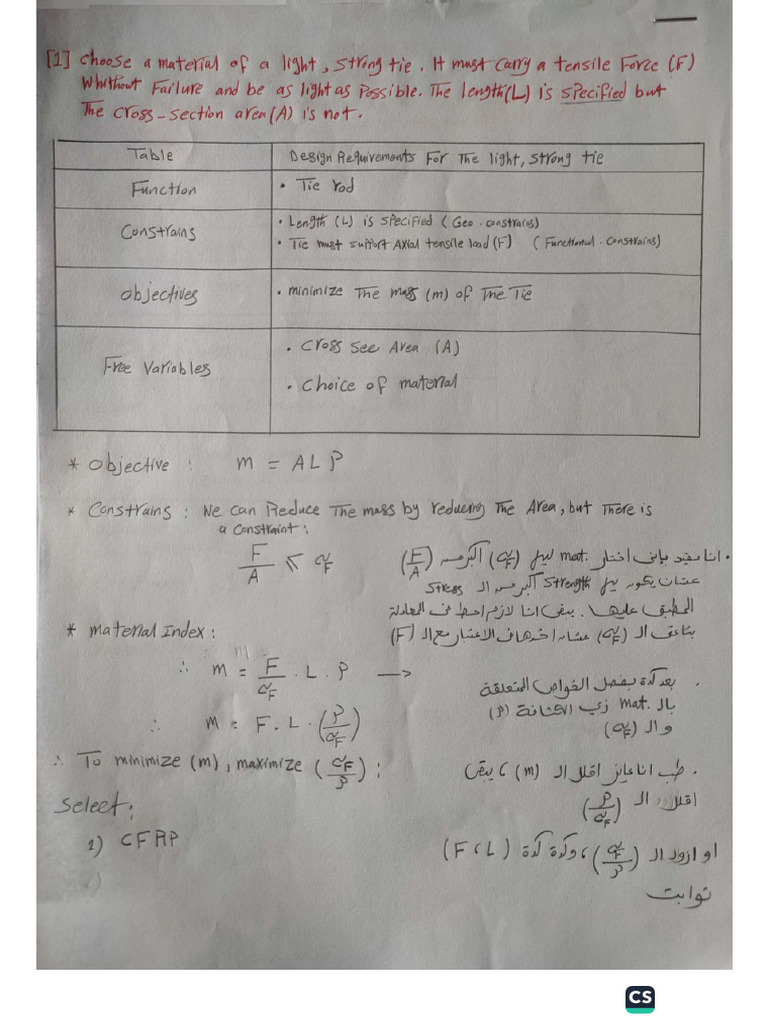 [1] Choose a material of a light, strong tie. It must carry a tensile Force (F)
Whithout Failure and be as light as possible. The length(L) is specified but
The cross-section area(A) is not.
Table
Design Requirements For The light, strong tie
Function
• Tie rod
Constrains
• Length (L) is specified (Geo. constrains)
• Tie must support Axial tensile load (F) (Functional. constrains)
objectives
• minimize The mass (m) of The Tie
Free Variables
• Cross Sec Area (A)
• Choice of material
* Objective : m = A L ρ
* Constrains : We can Reduce The mass by reducing The Area, but There is
a constraint:
F/A ≤ σF
• انا مقيد باني اختار .mat ليها (σF) اكبر من (F/A)
عشان يكون ليها Strength اكبر من الـ Stress
المطبق عليها. يبقى انا لازم احط في المعادلة
بتاعتي الـ (σF) عشان اخدها في الاعتبار مع الـ (F)
* Material Index :
∴ m = F/σF . L . ρ →
∴ m = F . L . (ρ/σF)
• بعد كدة بفصل الخواص المتعلقة
بالـ .mat زي الكثافة (ρ)
و الـ (σF)
∴ To minimize (m), maximize (σF/ρ) :
• طب انا عايز اقلل الـ (m) ، يبقى
اقلل الـ (ρ/σF)
Select:
1) CFRP
او ازود الـ (σF/ρ) ، وكدة كدة (F, L)
ثوابت
CS